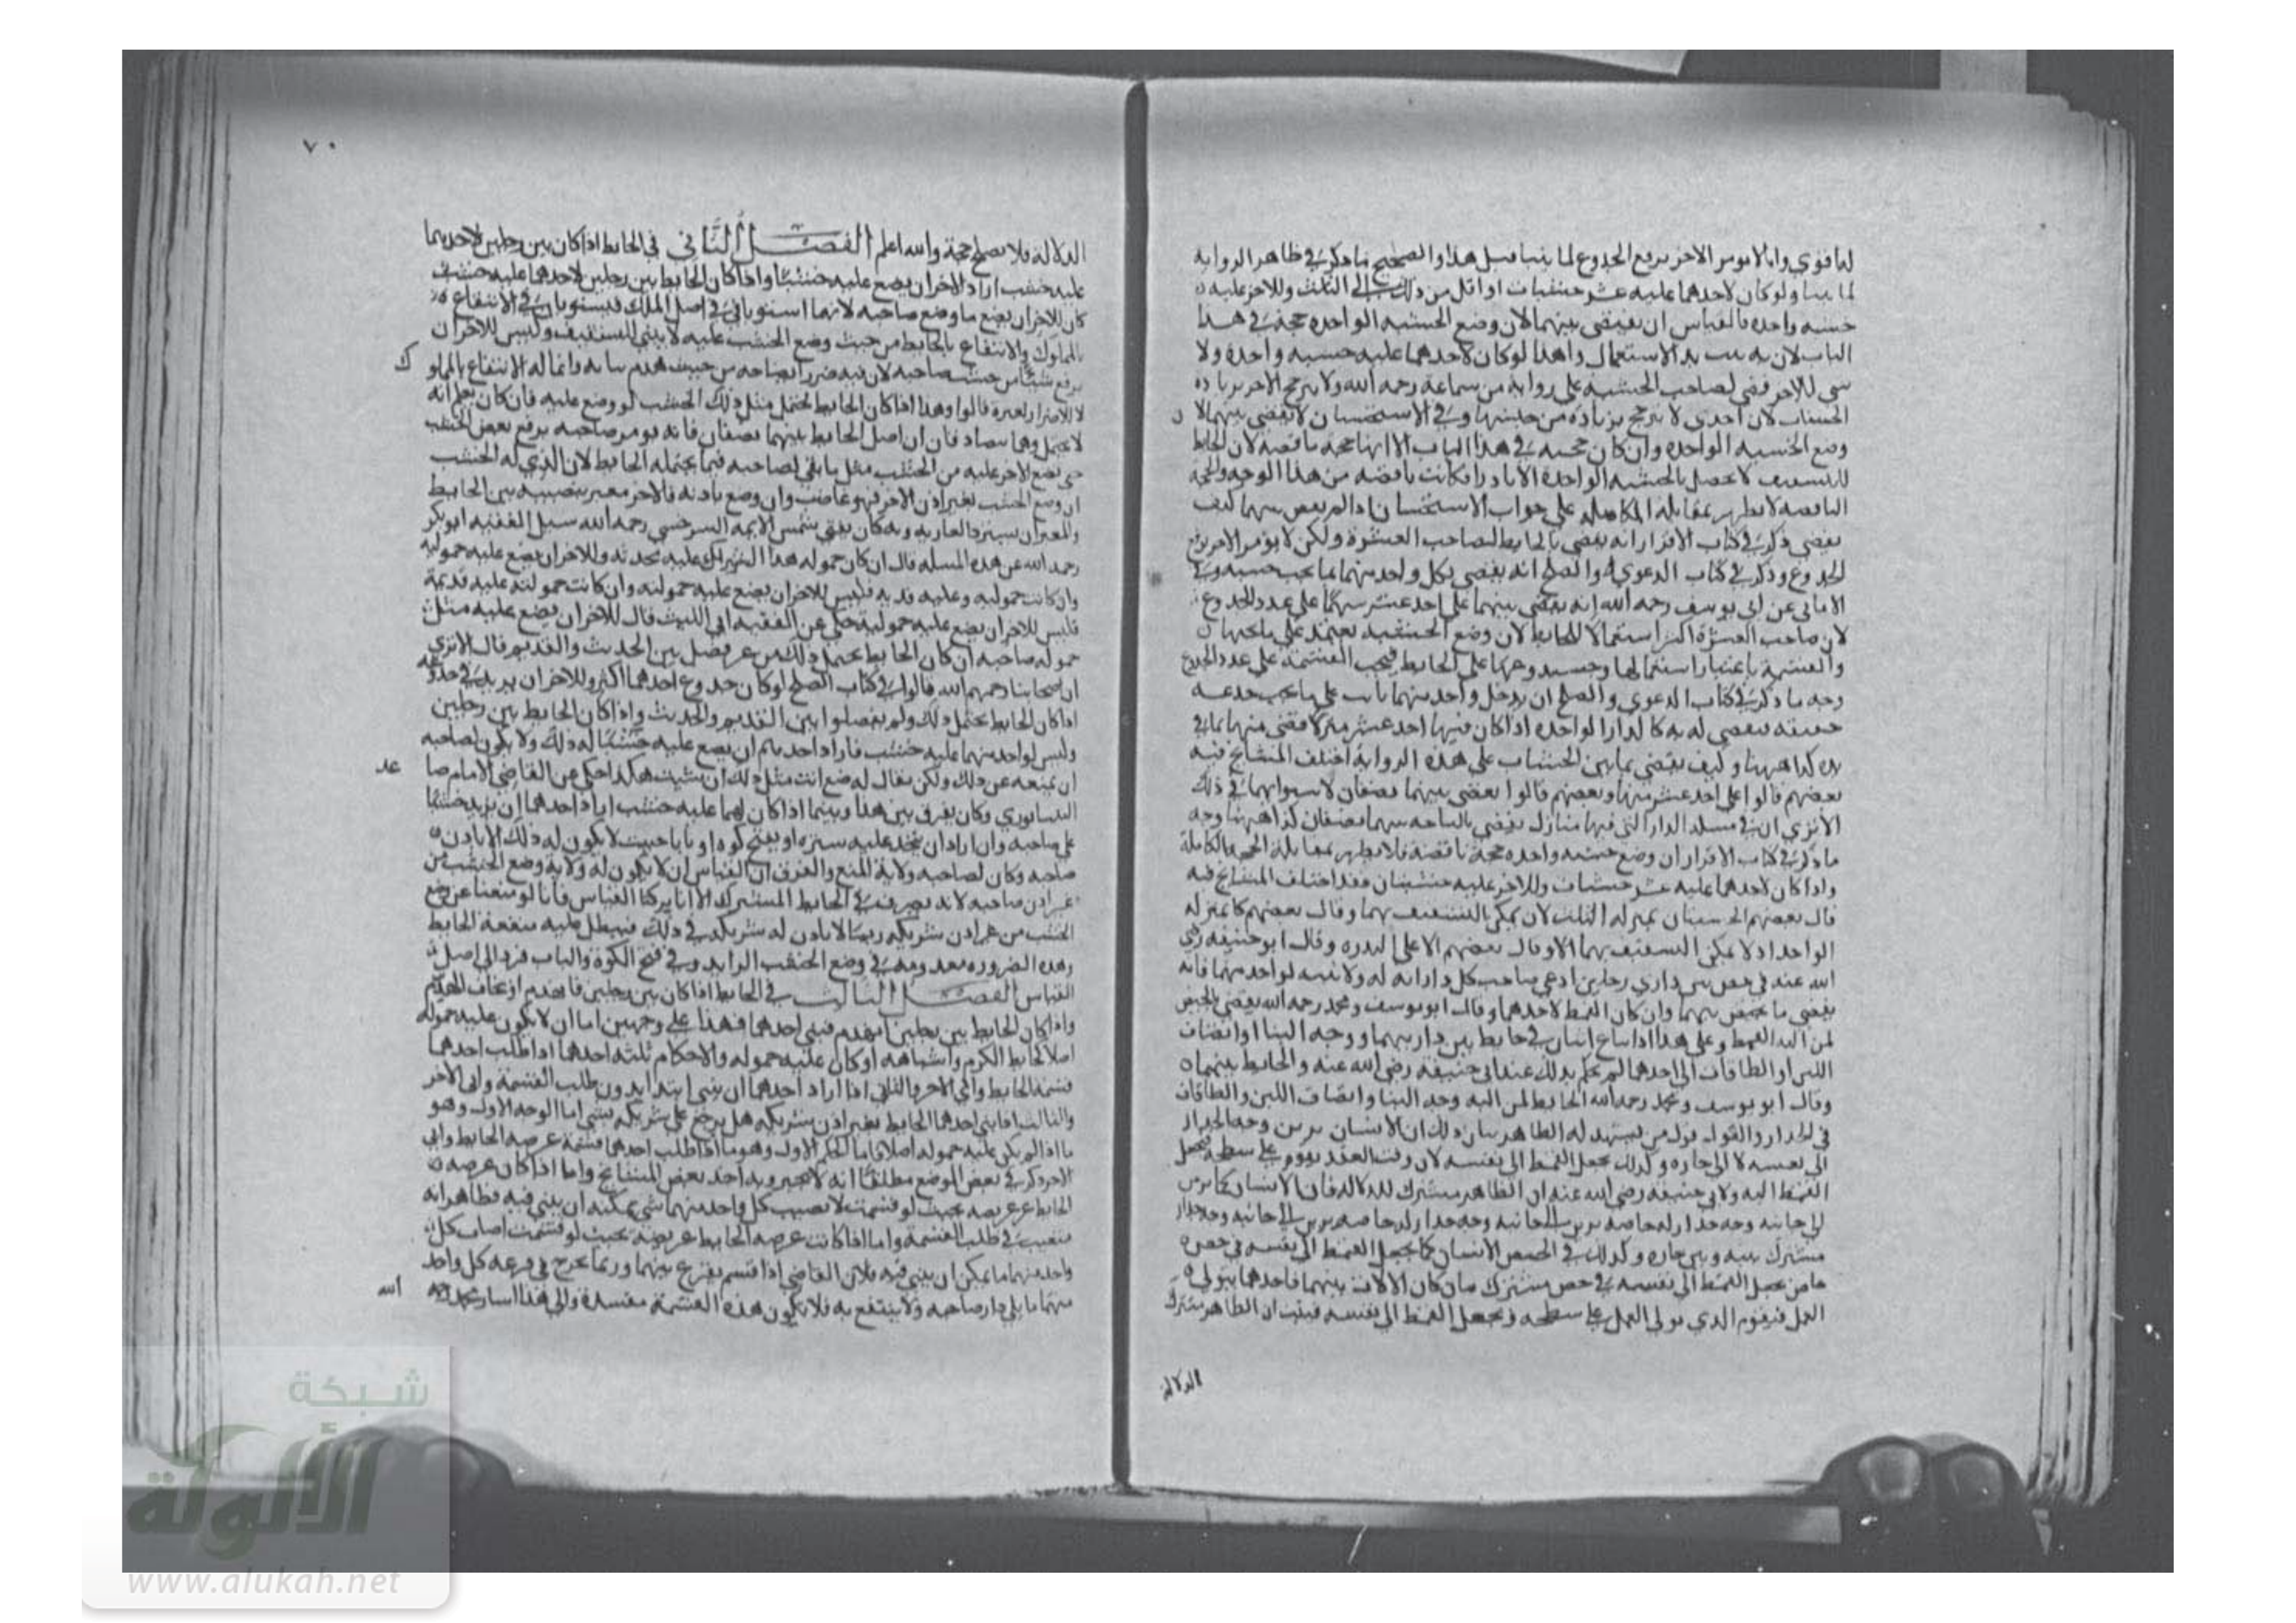 لما قوي وانا لا نومر الاخر برفع الجذوع لما بينا قبل هذا والصحيح ما ذكر في ظاهر الرواية
لما بينا ولو كان لاحدهما عليه عشر خشبات او اقل من ذلك الى الثلث وللاخر عليه
خشبه واحده فالقياس ان يقضى بينهما لان وضع الخشبه الواحده حجة في هذا
الباب لان به يثبت يد الاستعمال ولهذا لو كان لاحدهما عليه خشبه واحدة ولا
شي للاخر قضى لصاحب الخشبة على رواية من سماعة رحمه الله ولا يترجح الاخر بزيادة
الخشبات لان احدي لا يترجح بزيادة من جنسها وفي الاستحسان لا يقضى بينهما لان
وضع الخشبه الواحده وان كان حجه في هذا الباب الا انها حجة ناقصه لان الحايط
للتسقيف لا يحصل بالخشبه الواحدة الا نادرا فكانت ناقصه من هذا الوجه والحجة
الناقصه لا تظهر بمقابلة الكاملة على جواب الاستحسان اذا لم يقض بينهما كيف
يقضى ذكر في كتاب الاقرار انه يقضى بالحايط لصاحب العشرة ولكن لا يومر الاخر برفع
الجذوع وذكر في كتاب الدعوي والصلح انه يقضى لكل واحد منهما بما تحت خشبه وفي
الامالى عن ابى يوسف رحمه الله انه يقضى بينهما على احد عشر سهما على عدد الجذوع
لان صاحب العشرة اكثر استعمالا للحايط لان وضع الخشبة يعتمد على ما تحتها
والقسمة باعتبار استعمالها وخشبه وغيرها على الحايط فيجب القسمة على عدد الجذوع
وجه ما ذكر في كتاب الدعوي والصلح ان يد كل واحد منهما ثابت على ما تحت جذعه
حقيقه فيقضى له به كالدار الواحده اذا كان فيها احد عشر منزلا يقضى منها بما في
يده كذا ههنا وكيف يقضى بما بين الخشبات على هذه الرواية اختلف المشايخ فيه
بعضهم قالوا على احد عشر سهما وبعضهم قالوا يقضى بينهما نصفان لاستوائهما في ذلك
الا تري ان في مسلة الدار التى فيها منازل يقضى بالساحه بينهما نصفان كذا ههنا وجه
ما ذكر في كتاب الاقرار ان وضع خشبه واحده حجة ناقصة فلا تظهر بمقابلة الحجه الكاملة
واذا كان لاحدهما عليه عشر خشبات وللاخر عليه خشبتان فقد اختلف المشايخ فيه
قال بعضهم الخشبتان بمنزلة الثلث لان يمكن التسقيف بهما وقال بعضهم كما بمنزلة
الواحد اذ لا يمكن التسقيف بهما الا وقال بعضهم الا على الندره وقال ابو حنيفه رضي
الله عنه في خص بين داري رجلين ادعى صاحب كل دار انه له ولا بينه لواحد منهما فانه
يقضى بالخص بينهما وان كان القمط لاحدهما وقال ابو يوسف ومحمد رحمه الله يقضى بالخص
لمن اليه القمط وعلى هذا اذا تنازع اثنان في حايط بين داريهما ووجه البنا او انصاف
اللبن او الطاقات الى احدهما لم يحكم بذلك عند ابى حنيفه رضى الله عنه والحايط بينهما
وقال ابو يوسف ومحمد رحمه الله الحايط لمن اليه وجه البنا وانصاف اللبن والطاقات
في الجدار والقول قول من يشهد له الظاهر بيان ذلك ان الانسان يزين وجه الجدار
الى نفسه لا الى جاره وكذلك يجعل القمط الى نفسه لان وقت العقد يقوم على سطحه فيجعل
القمط اليه ولابي حنيفه رضى الله عنه ان الظاهر مشترك للدلاله فان الانسان كما يزين
الى جانبه وجه جدار له خاصه يزين الى جانبه وجه جدار
مشترك بينه وبين جاره وكذلك في الخص الانسان كما يجعل القمط الى نفسه في خصه
خاص يجعل القمط الى نفسه في خص مشترك بان كان الالات بينهما فاحدهما يتولى
العمل فيقوم الذي يتولى العمل على سطحه ويجعل القمط الى نفسه فيثبت ان الظاهر مشترك
الدلالة
٧٠
الدلالة فلا يصلح حجة والله اعلم الفصل الثاني في الحايط اذا كان بين رجلين لاحدهما
عليه خشب اراد الاخر ان يضع عليه خشبا واذا كان الحايط بين رجلين لاحدهما عليه خشب
كان للاخر ان يضع ما وضع صاحبه لانهما استويا في اصل الملك فيستويان في الانتفاع
بالمملوك والانتفاع بالحايط من حيث وضع الخشب عليه لا يبنى للتسقيف وليس للاخر ان
يرفع شيئا من خشب صاحبه لان فيه ضررا لصاحبه من حيث هدم بنائه وانما له الانتفاع بالمملو
ك
لا للاضرار لغيره قالوا وهذا اذا كان الحايط يحتمل مثل ذلك الخشب لو وضع عليه فان كان يعلم انه
لا يحتمل وهما يتصادقان ان اصل الحايط بينهما نصفان فانه يومر صاحبه برفع بعض الخشب
حتى يضع الاخر عليه من الخشب مثل ما بقي لصاحبه فيما يحتمله الحايط لان الذي له الخشب
ان وضع الخشب بغير اذن الاخر فهو غاصب وان وضع باذنه فالاخر معير نصيبه من الحايط
وللمعير ان يسترد العاريه وبه كان يفتي شمس الايمه السرخسي رحمه الله سيل الفقيه ابو بكر
رحمه الله عن هذه المسله قال ان كان حموله هذا الشريك عليه محدثه وللاخر ان يضع عليه حموليه
وان كانت حموليه وعليه قديه فليس للاخر ان يضع عليه حمولته وان كانت حمولته عليه قديمة
فليس للاخر ان يضع عليه حموليه حكي عن الفقيه ابي الليث قال للاخر ان يضع عليه مثل
حموله صاحبه ان كان الحايط يحتمل ذلك من غير فصل بين الحديث والقديم قال الا تري
ان اصحابنا رحمهم الله قالوا في كتاب الصلح لو كان جذوع احدهما اكثر وللاخر ان يزيد في جذوعه
اذا كان الحايط يحتمل ذلك ولم يفصلوا بين القديم والحديث واذا كان الحايط بين رجلين
وليس لواحد منهما عليه خشب فاراد احدهم ان يضع عليه خشبا له ذلك ولا يكون لصاحبه
ان يمنعه عن ذلك ولكن يقال له ضع انت مثل ذلك ان شيت هكذا حكي عن القاضي الامام صا
عد
النيسابوري وكان يفرق بين هذا وبينما اذا كان لهما عليه خشب اراد احدهما ان يزيد خشبا
على صاحبه وان اراد ان يتخذ عليه سترة او يفتح كوه او بابا حيث لا يكون له ذلك الا باذن
صاحبه وكان لصاحبه ولاية المنع والفرق ان القياس ان لا يكون له ولاية وضع الخشب من
غير اذن صاحبه لانه تصرف في الحايط المشترك الا انا تركنا القياس فانا لو منعنا عن وضع
الخشب من غير اذن شريكه ربما لا ياذن له شريكه في ذلك فيبطل عليه منفعة الحايط
وهذه الضروره في وضع الخشب الزايد وفي فتح الكوة والباب فرد الى اصل
القياس الفصل الثالث في الحايط اذا كان بين رجلين فانهدم او خاف الهدم
واذا كان الحايط بين رجلين انهدم فبنى احدهما فهذا على وجهين اما ان لا يكون عليه حموله
اصلا كحايط الكرم واشباهه او كان عليه حموله والاحكام ثلثه احدها اذا طلب احدهما
قسمة الحايط وابى الاخر والثاني اذا اراد احدهما ان يبنى ابتداء بدون طلب القسمة وابى الاخر
والثالث اذا بنى احدهما الحايط بغير اذن شريكه هل يرجع على شريكه بشي اما الوجه الاول وهو
ما اذا لم يكن عليه حموله اصلا اما الحكم الاول وهو ما اذا طلب احدهما قسمة عرصه الحايط وابى
الاخر ذكر في بعض المواضع مطلقا انه لا يجبر وبه اخذ بعض المشايخ واما اذا كان عرصه
الحايط غير عريضه بحيث لو قسمت لا يصيب كل واحد منهما شي يمكنه ان يبنى فيه فظاهر انه
متعنت في طلب القسمة واما اذا كانت عرصه الحايط عريضة بحيث لو قسمت اصاب كل
واحد منهما ما يمكن ان يبنى فيه فلان القاضي اذا قسم يقرع بينهما وربما تخرج في قرعه كل واحد
منهما ما يلي دار صاحبه ولا ينتفع به فلا يكون هذه القسمة مفسدة والى هذا اشار محمد رحمه
الله
شبكة
الألوكة
www.alukah.net